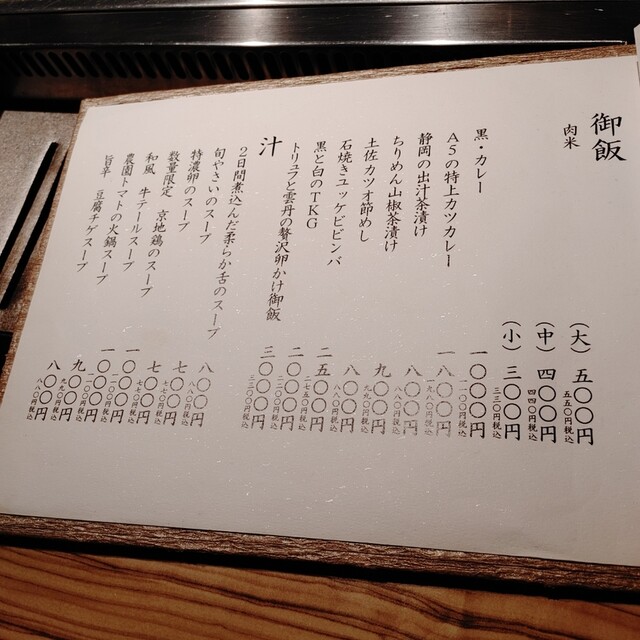 御飯
肉米
(大) 五〇〇円
五五〇円税込
(中) 四〇〇円
四四〇円税込
(小) 三〇〇円
三三〇円税込
黒・カレー 一〇〇〇円
一一〇〇円税込
A5の特上カツカレー 一八〇〇円
一九八〇円税込
静岡の出汁茶漬け 八〇〇円
八八〇円税込
ちりめん山椒茶漬け 九〇〇円
九九〇円税込
土佐カツオ節めし 八〇〇円
八八〇円税込
石焼きユッケビビンバ 二五〇〇円
二七五〇円税込
黒と白のTKG 二〇〇〇円
二二〇〇円税込
トリュフと雲丹の贅沢卵かけ御飯 三〇〇〇円
三三〇〇円税込
汁
2日間煮込んだ柔らか舌のスープ 八〇〇円
八八〇円税込
旬やさいのスープ 七〇〇円
七七〇円税込
特濃卵のスープ 七〇〇円
七七〇円税込
数量限定 京地鶏のスープ 一〇〇〇円
一一〇〇円税込
和風 牛テールスープ 一〇〇〇円
一一〇〇円税込
農園トマトの火鍋スープ 九〇〇円
九九〇円税込
旨辛 豆腐チゲスープ 八〇〇円
八八〇円税込